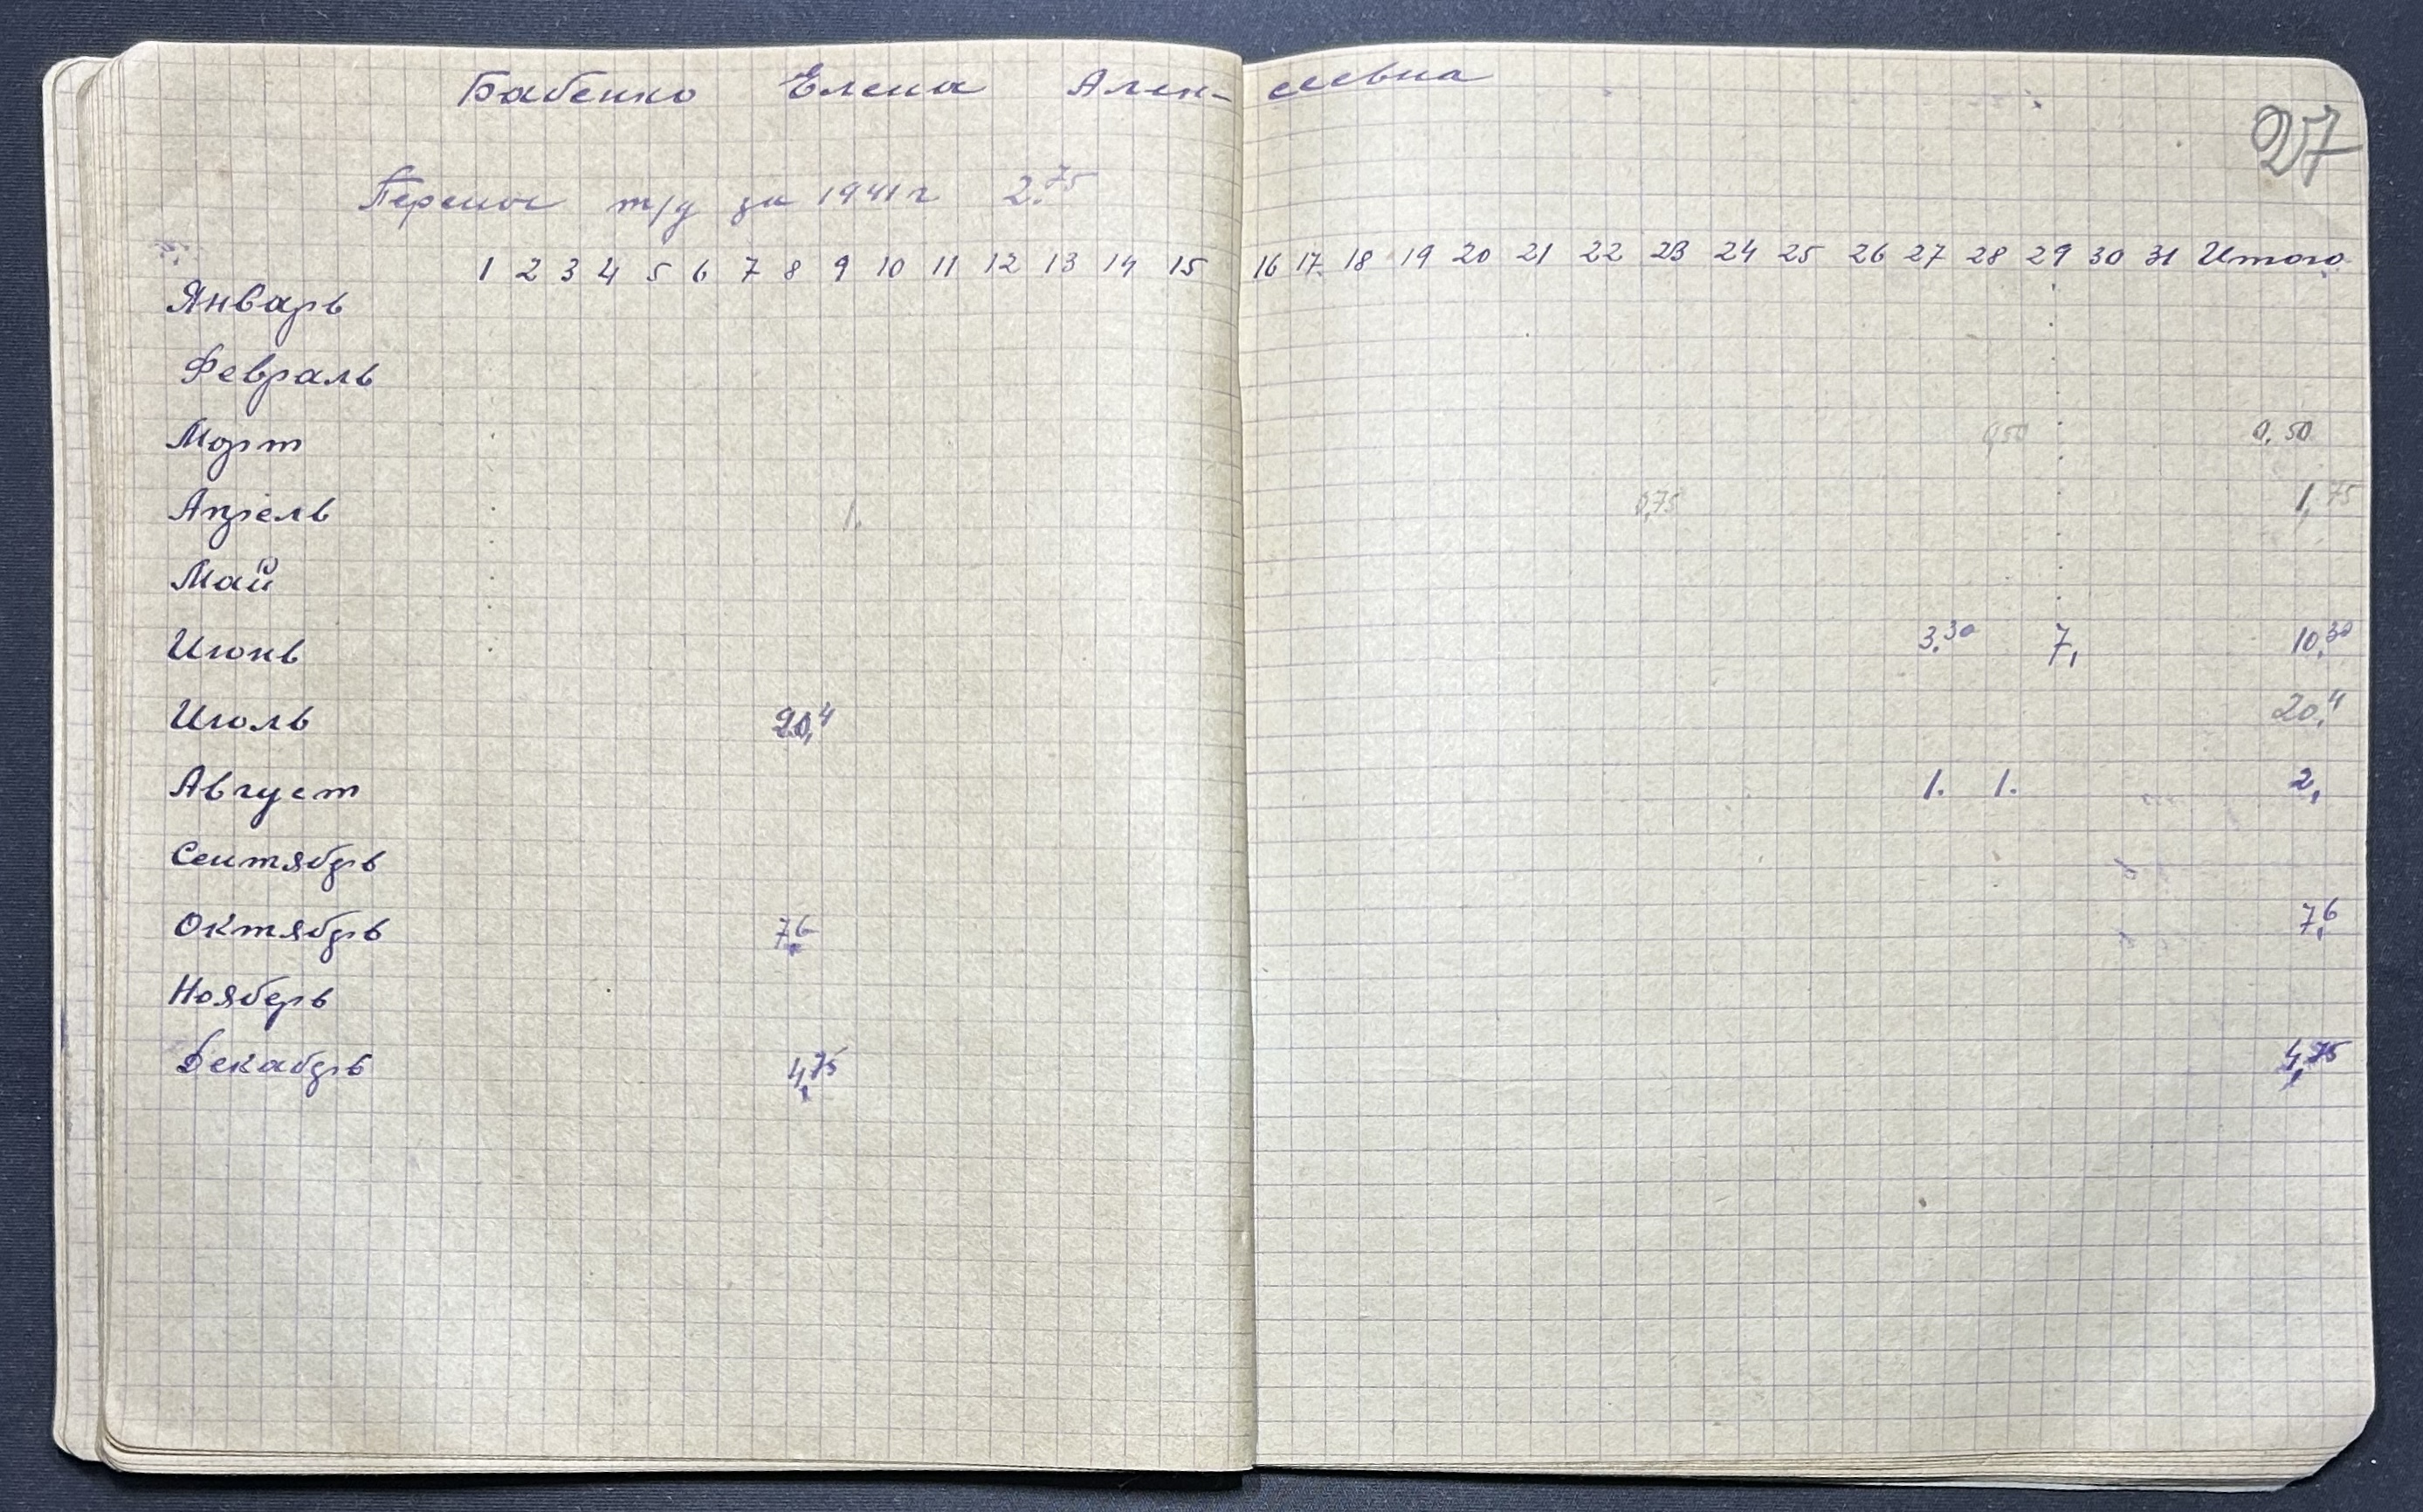 Бабенко Елена Алек- сеевна
27
Перенос т/д за 1941 г 2.75
1 2 3 4 5 6 7 8 9 10 11 12 13 14 15 16 17 18 19 20 21 22 23 24 25 26 27 28 29 30 31 Итого
Январь
Февраль
Март 0,50 0,50
Апрель 1. 0,75 1,75
Май
Июнь 3.30 7, 10,30
Июль 20,4 20,4
Август 1. 1. 2,
Сентябрь
Октябрь 7,6 7,6
Нояберь
Декабрь 4,75 4,75